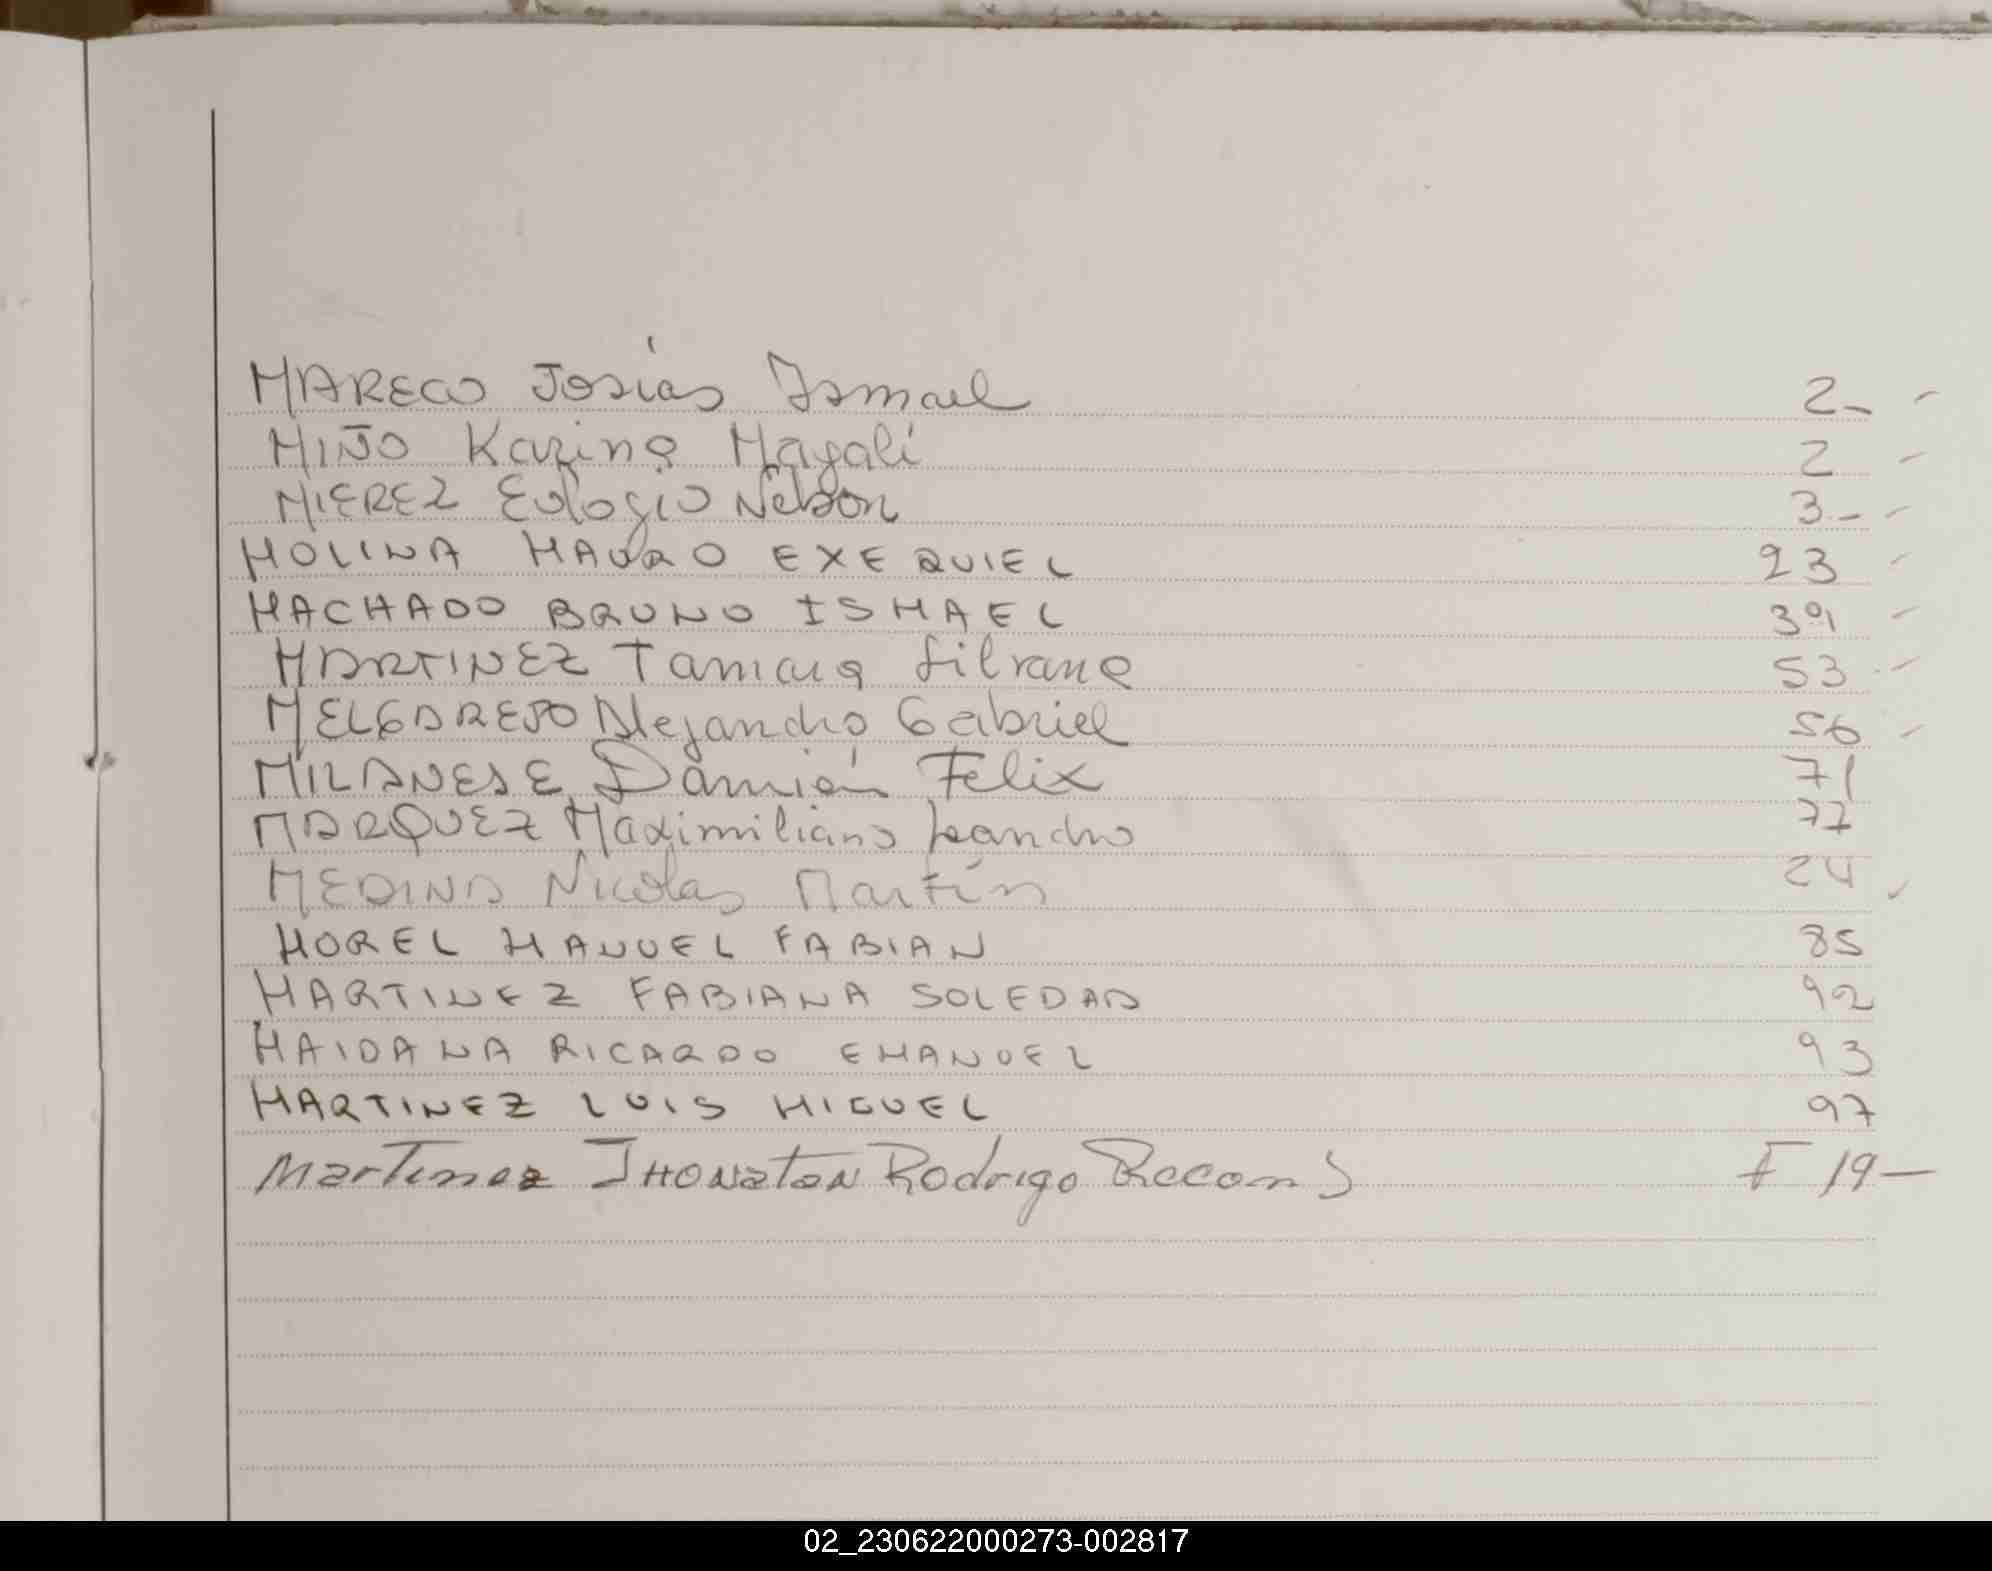 MARECO Josías Ismael 2 - -
MIÑO Karina Magalí 2 -
MIEREZ Eulogio Nelson 3 - -
MOLINA MAURO EXEQUIEL 23 -
MACHADO BRUNO ISMAEL 39 -
MARTINEZ Tamara Silvana 53 -
MELGAREJO Alejandro Gabriel 56 -
MILANESE Damián Felix 71
MARQUEZ Maximiliano Leandro 77
MEDINA Nicolas Martín 24 -
MOREL MANUEL FABIAN 85
MARTINEZ FABIANA SOLEDAD 92
MAIDANA RICARDO EMANUEL 93
MARTINEZ LUIS MIGUEL 97
Martinez JHONatan Rodrigo F 19 -
02_230622000273-002817